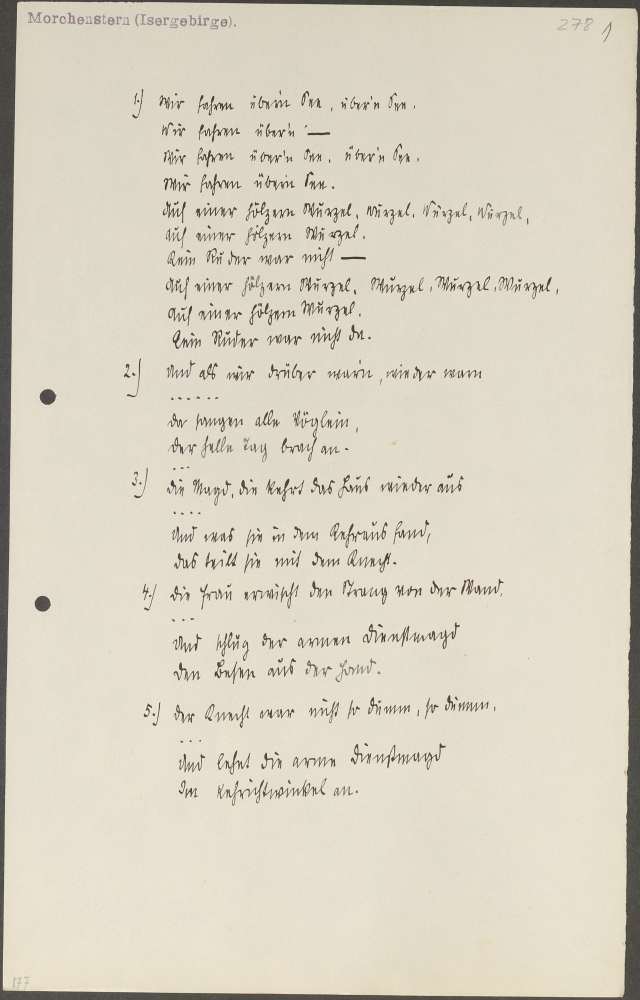 Morchenstern (Isergebirge).
278 1
1.) Wir fahren über'n See, über'n See.
Wir fahren über'n —
Wir fahren über'n See, über'n See.
Wir fahren über'n See.
Auf einer hölzern Wurzel, Wurzel, Wurzel, Wurzel,
Auf einer hölzern Wurzel.
Kein Ruder war nicht —
Auf einer hölzern Wurzel, Wurzel, Wurzel, Wurzel,
Auf einer hölzern Wurzel.
Kein Ruder war nicht da.
2.) Und als wir drüber war'n, wieder warn
......
da sangen alle Vöglein,
der helle Tag brach an.
...
3.) die Magd, die kehrt das Haus wieder aus
....
Und was sie in dem Kehraus fand,
das teilt sie mit dem Knecht.
4.) die Frau erwischt den Strang von der Wand,
...
Und schlug der armen Dienstmagd
den Besen aus der Hand.
5.) der Knecht war nicht so dumm, so dumm,
...
Und lehnt die arme Dienstmagd
Im Kehrichtwinkel an.
177